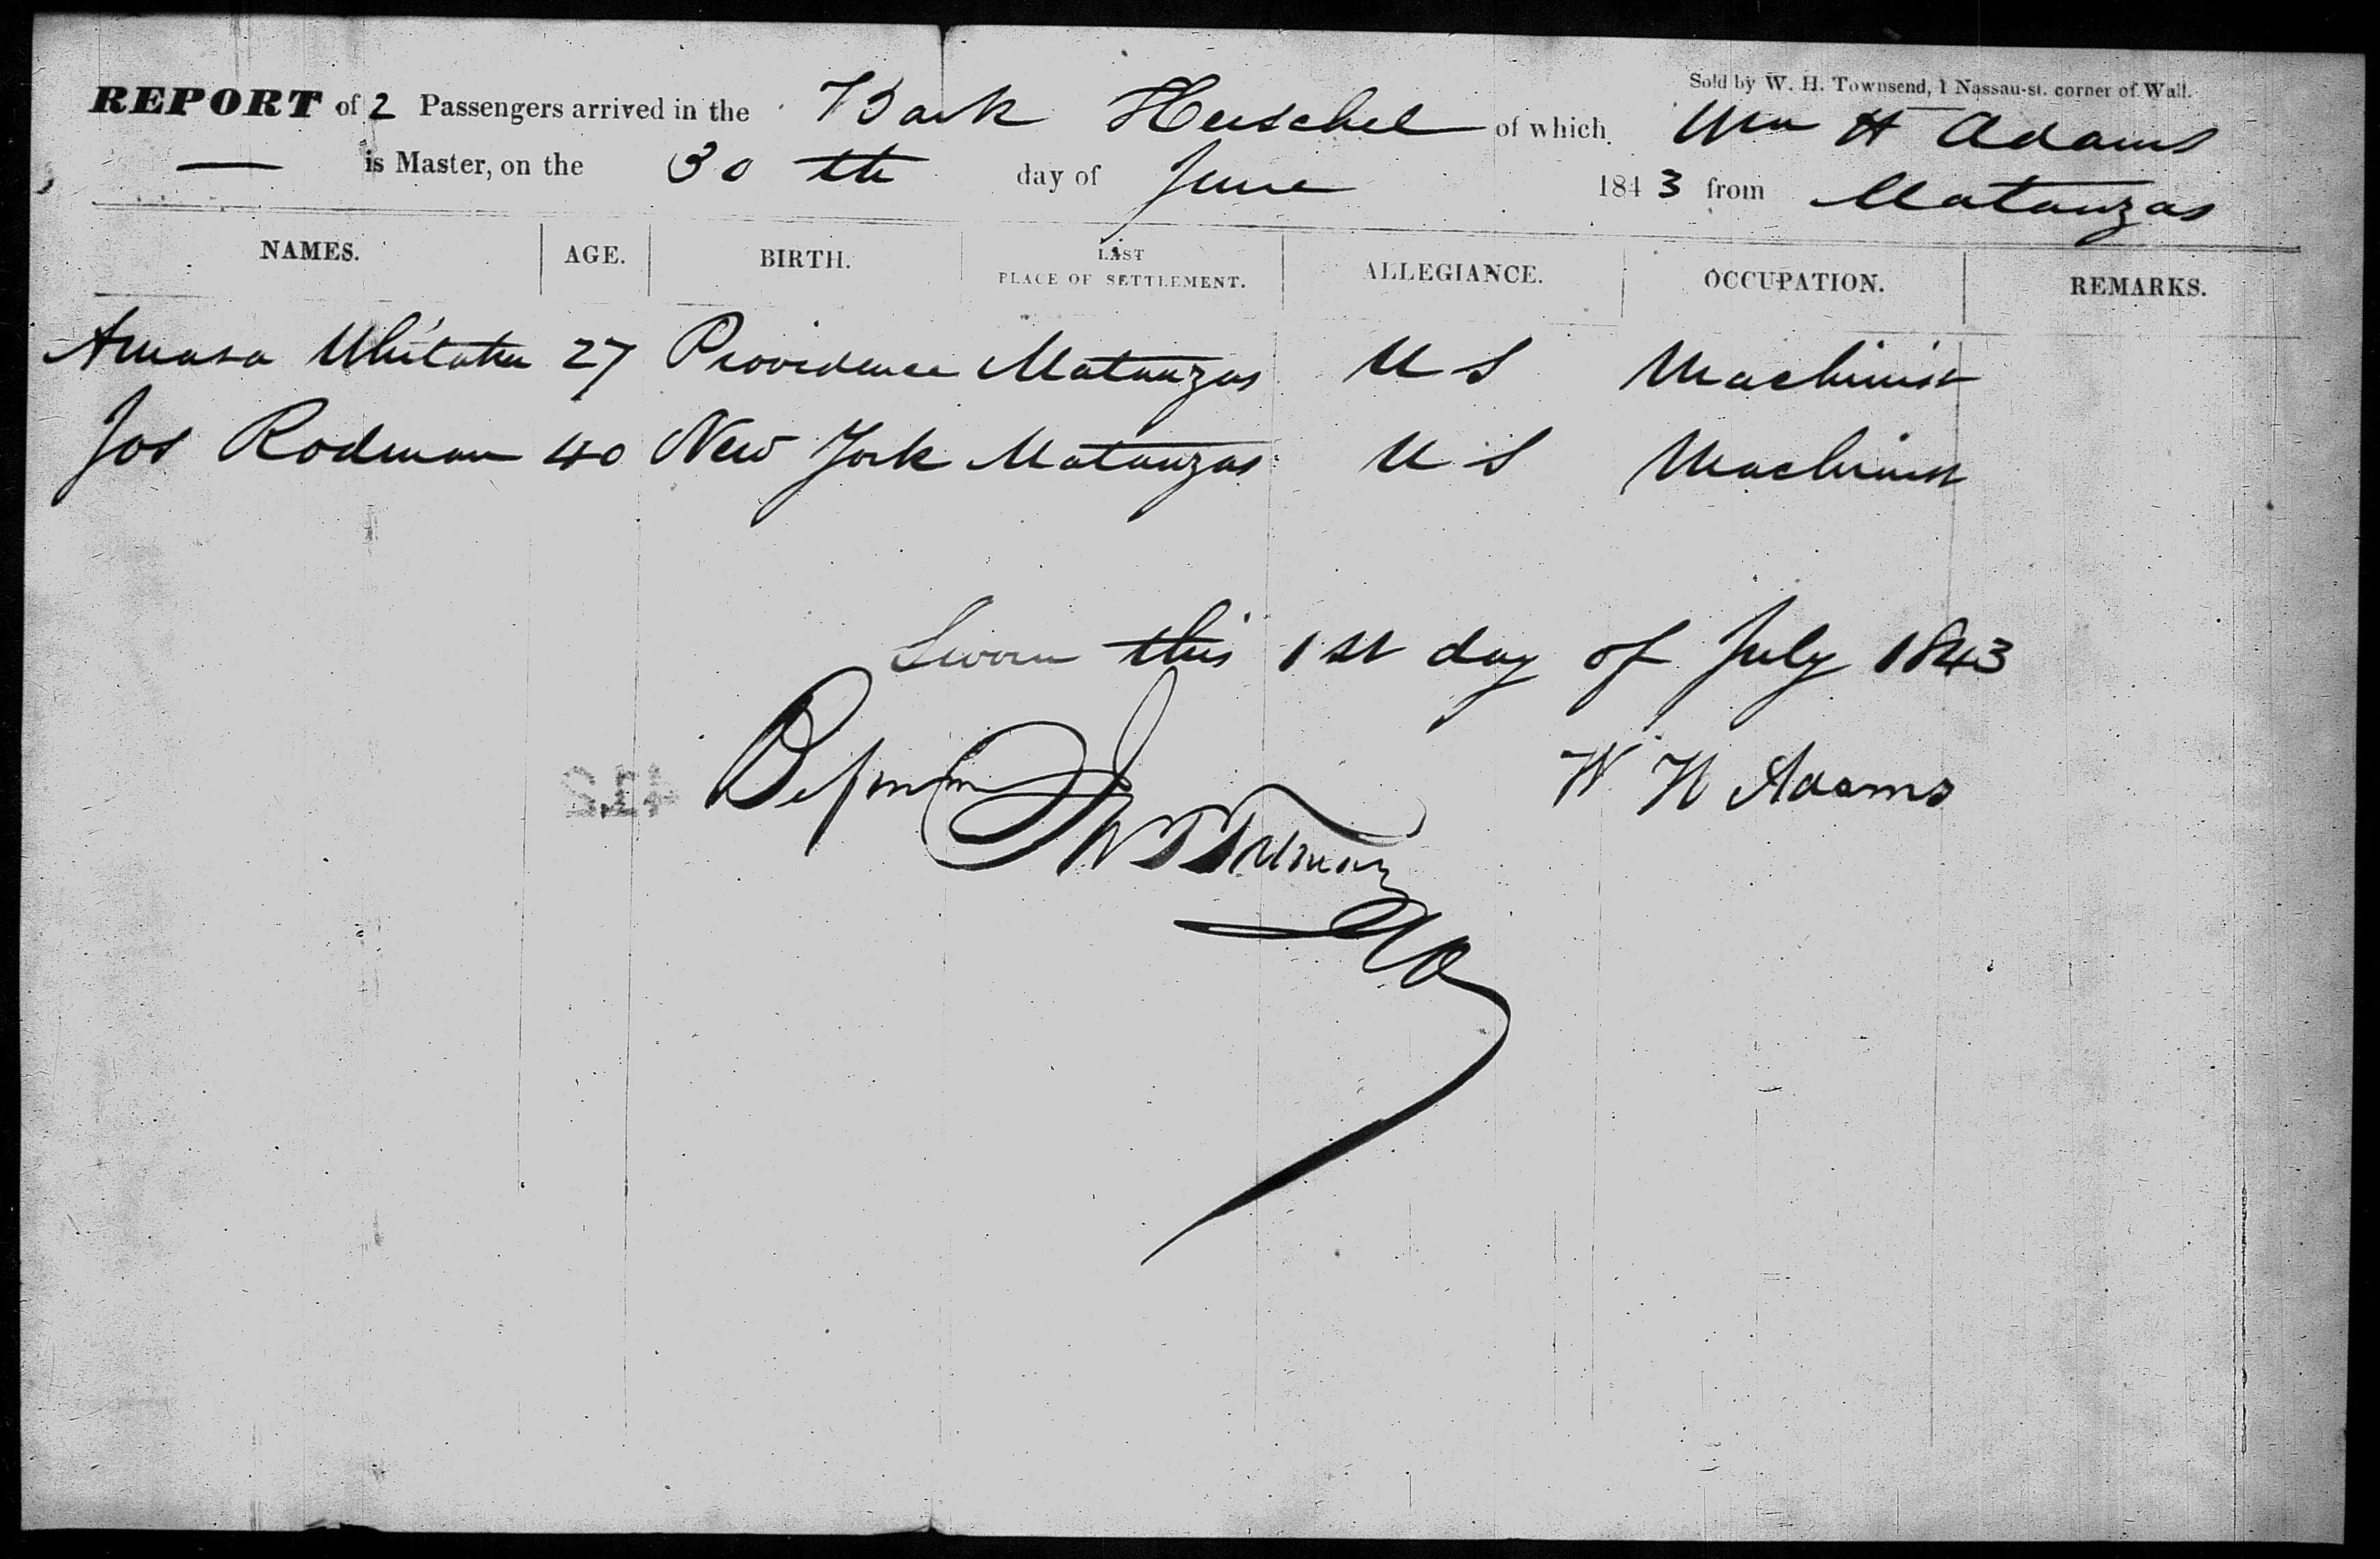 Sold by W. H. Townsend, 1 Nassau-st. corner of Wall.
REPORT of 2 Passengers arrived in the Bark Herschel of which Wm H Adams
— is Master, on the 30th day of June 1843 from Matanzas
NAMES. AGE. BIRTH. LAST PLACE OF SETTLEMENT. ALLEGIANCE. OCCUPATION. REMARKS.
Amasa Whitaker 27 Providence Matanzas U S Machinist
Jos Rodman 40 New York Matanzas U S Machinist
Sworn this 1st day of July 1843
Before me W H Adams
412